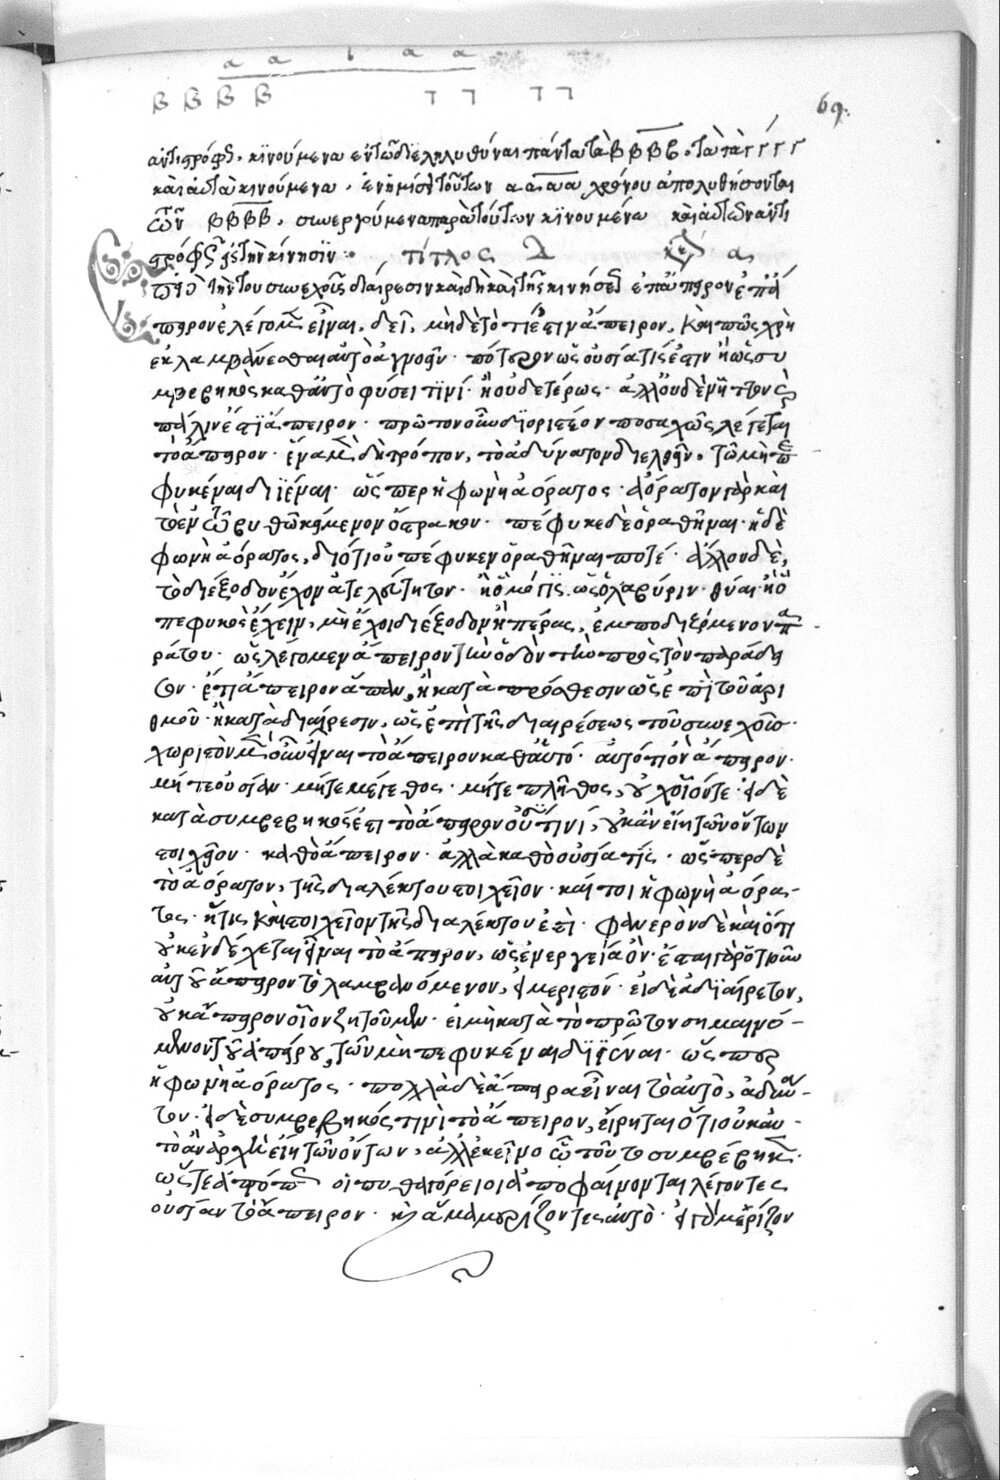 α α ι α α
β β β β
69.
κινούμενα πάντα τὰ β β β β. τὰ γ γ γ γ
καὶ κινούμενα. α α α α χρόνου ἀπολυθήσονται
β β β β. παρὰ τούτων κινουμένω
τὴν κίνησιν τίτλος λ κεφ α
τὴν τοῦ συνεχοῦς διαίρεσιν καὶ δὴ καὶ τῆς κινήσεως ἐπ' ἄπειρον
ἄπειρον ἐλέγομεν εἶναι. δεῖ, μηδὲ τὸ τί ἐστιν ἄπειρον. καὶ πῶς χρὴ
ἐκλαμβάνεσθαι αὐτὸ ἀγνοεῖν. πότερον ὡς οὐσία τίς ἐστιν ἢ ὡς συ
μβεβηκὸς καθ' αὑτὸ φύσει τινί. ἢ οὐδετέρως. ἀλλ' οὐδὲν ἧττον
πάλιν ἐστὶ ἄπειρον. πρῶτον οὖν διοριστέον ποσαχῶς λέγεται
τὸ ἄπειρον. ἕνα μὲν δὴ τρόπον, τὸ ἀδύνατον διελθεῖν. τῷ μὴ πε
φυκέναι διϊέναι. ὥσπερ ἡ φωνὴ ἀόρατος. ἀόρατον γὰρ καὶ
τὸ ἐν τῷ βυθῷ κείμενον ὄστρακον. πέφυκε δὲ ὁραθῆναι. ἡ δὲ
φωνὴ ἀόρατος, διότι οὐ πέφυκεν ὁραθῆναι ποτέ. ἄλλου δὲ,
τὸ διέξοδον ἔχον ἀτελεύτητον. ἢ ὃ μόγις. ὡς ὁ λαβύρινθος
πεφυκὸς ἔχειν, μὴ ἔχοι διέξοδον ἢ πέρας, ἐμποδιζόμενον
ὡς λέγομεν ἄπειρον τὴν ὁδὸν τὴν πρὸς τὸν παράδει
σον. ἔτι ἄπειρον ἅπαν, ἢ κατὰ πρόσθεσιν ὡς ἐπὶ τοῦ ἀρι
θμοῦ. ἢ κατὰ διαίρεσιν, ὡς ἐπὶ τῆς διαιρέσεως τοῦ συνεχοῦς.
χωριστὸν μὲν οὖν εἶναι τὸ ἄπειρον καθ' αὑτό. αὐτό τι ὂν ἄπειρον.
μήτε οὐσίαν. μήτε μέγεθος. μήτε πλῆθος, οὐχ οἷόντε. εἰ δὲ
κατὰ συμβεβηκός ἐστι τὸ ἄπειρον, οὐκ ἂν εἴη τῶν ὄντων
στοιχεῖον. καθὸ ἄπειρον. ἀλλὰ καθὸ οὐσία τίς. ὥσπερ δὲ
τὸ ἀόρατον, τῆς διαλέκτου στοιχεῖον. καίτοι ἡ φωνὴ ἀόρα-
τος. ἥτις καὶ στοιχεῖον τῆς διαλέκτου ἐστὶ. φανερὸν δὲ καὶ ὅτι
οὐκ ἐνδέχεται εἶναι τὸ ἄπειρον, ὡς ἐνεργείᾳ ὄν. ἔσται γὰρ ὁτιοῦν
αὐτοῦ ἄπειρον τὸ λαμβανόμενον, εἰ μεριστόν. εἰ δὲ ἀδιαίρετον,
οὐκ ἄπειρον οἷον ζητοῦμεν. εἰ μὴ κατὰ τὸ πρῶτον σημαινό-
μενον τοῦ ἀπείρου, τῶν μὴ πεφυκέναι διϊέναι. ὥσπερ
ἡ φωνὴ ἀόρατος. πολλὰ δὲ ἄπειρα εἶναι τὸ αὐτὸ, ἀδύνα-
τον. εἰ δὲ συμβεβηκός τινὶ τὸ ἄπειρον, εἴρηται ὅτι οὐκ ἂν
τὸ ἂν ἀρχὴ εἴη τῶν ὄντων. ἀλλ' ἐκεῖνο ᾧ τοῦτο συμβέβηκε.
ὥστε ἀτόπως οἱ πυθαγόρειοι ἀποφαίνονται λέγοντες
οὐσίαν τὸ ἄπειρον. καὶ ἅμα μερίζοντες αὐτὸ.